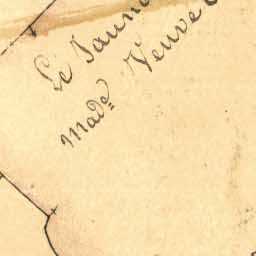 Le Jaune
Made Veuve